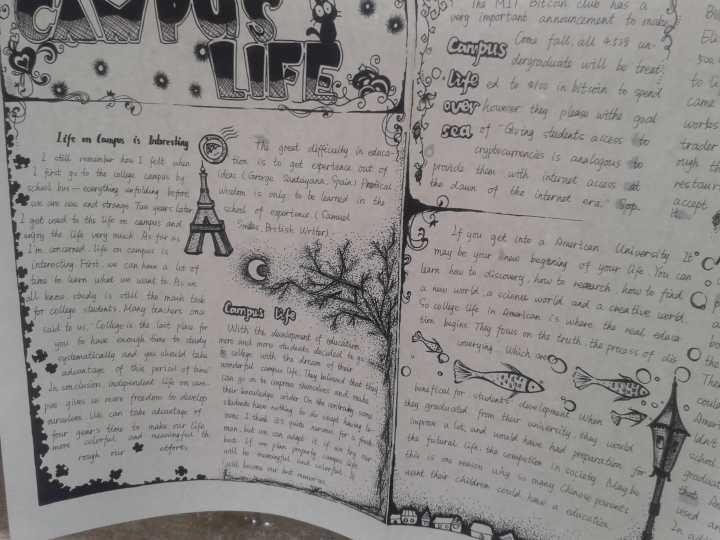 CAMPUS
LIFE
Life on Campus is Interesting
I still remember how I felt when
I first go to the college campus by
school bus — everything unfolding before
me are new and strange. Two years later
I got used to the life on campus and
enjoy the life very much. As far as
I'm concerned, life on campus is
interesting. First, we can have a lot of
time to learn what we want to. As we
all know, study is still the main task
for college students. Many teachers once
said to us, "College is the last place for
you to have enough time to study
systematically and you should take
advantage of this period of time."
In conclusion, independent life on cam-
pus gives us more freedom to develop
ourselves. We can take advantage of
four years' time to make our life
more colorful and meaningful th
rough our efforts.
The great difficulty in educa-
tion is to get experience out of
ideas. (George Santayana, Spain) Practical
wisdom is only to be learned in the
school of experience. (Samuel
Smiles, British Writer)
Campus life
With the development of education,
more and more students decided to go
to college with the dream of their
wonderful campus life. They believed that they
can go on to improve themselves and make
their knowledge wider. On the contrary, some
students have nothing to do except having les-
sons. I think it's quite normal for a fresh
man, but we can adapt it if we try our
best. If we plan properly, campus life
will be meaningful and colorful. It
will become our best memories.
The MIT Bitcoin club has a
very important announcement to make.
Campus
life
over
sea
Come fall, all 4,528 un-
dergraduate will be treat-
ed to $100 in bitcoin to spend
however they please with the goal
of "Giving students access to
cryptocurrencies is analogous to
provide them with internet access at
the dawn of the internet era."
If you get into a American University. It
may be your new beginning of your life. You can
learn how to discovery, how to research, how to find
a new world, a science world and a creative world.
So college life in American is where the real educa-
tion begins. They focus on the truth, the process of dis
covering... Which are
benefical for students' development. When
they graduated from their university, they would
improve a lot, and would have had preparation for
the futural life, the competion in society. Maybe
this is one reason why so many Chinese parents
want their children could have a education